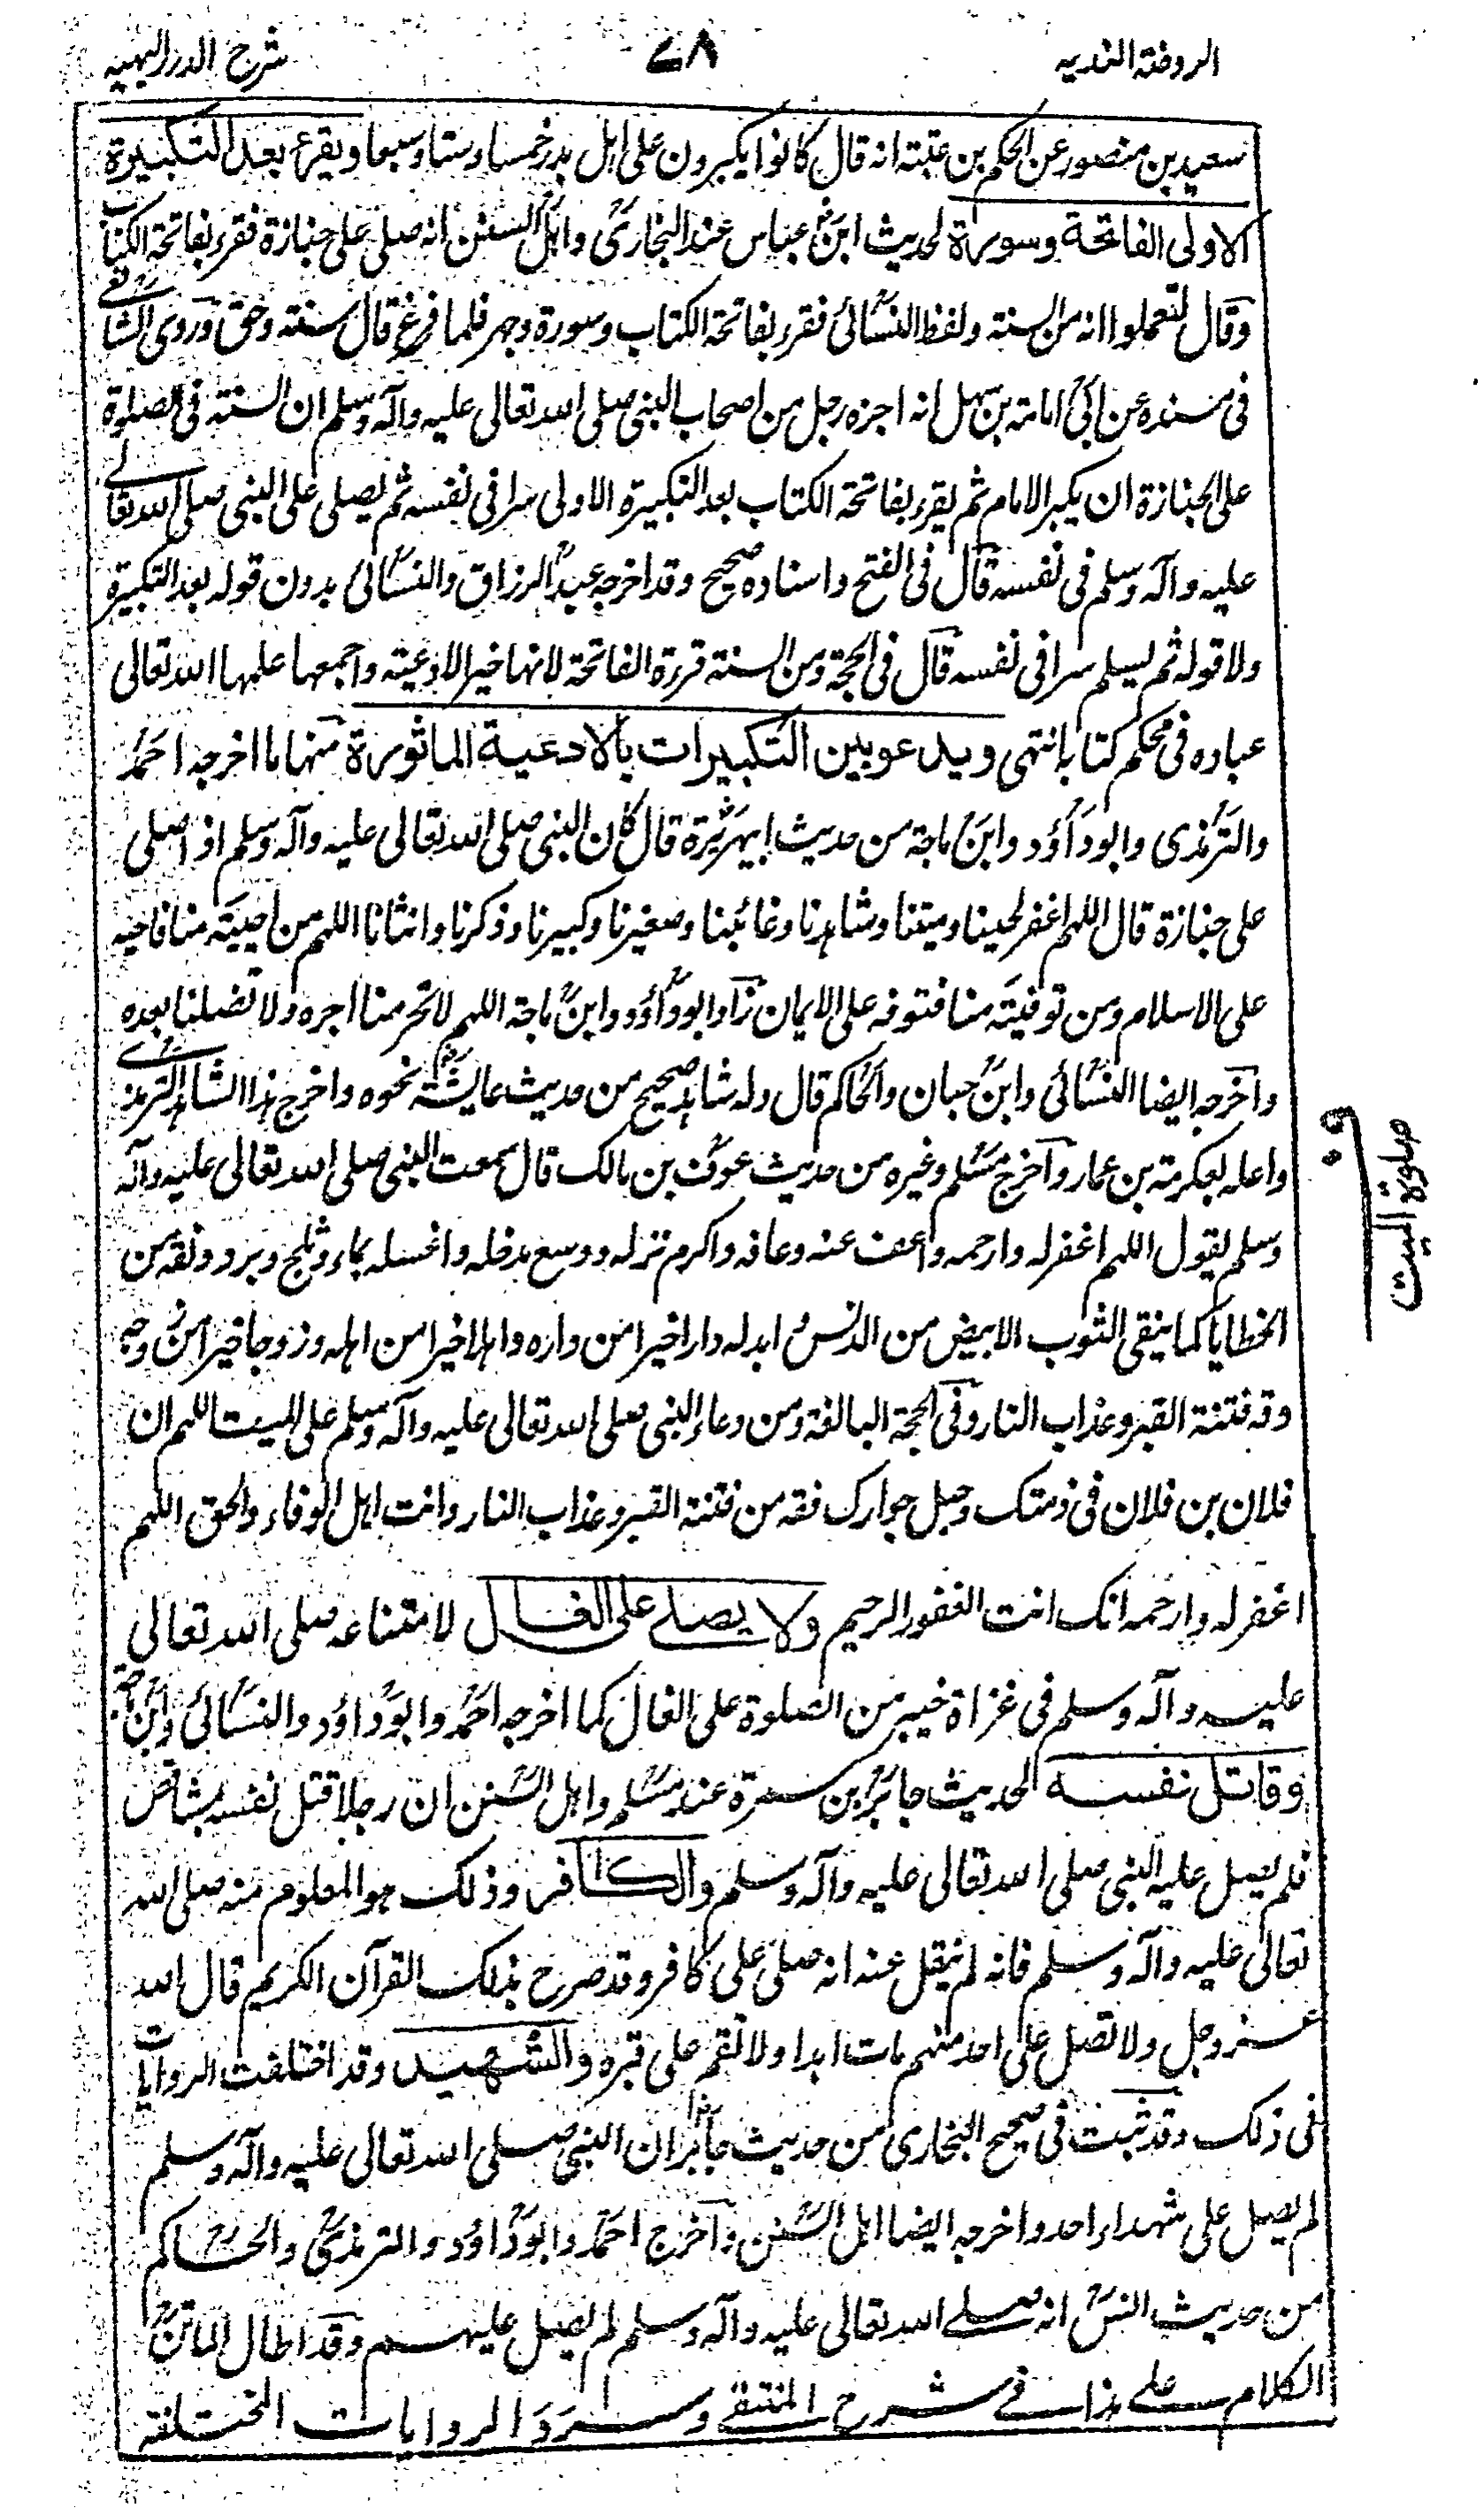 الروضة الندية
٧٨
شرح الدرر البهية
سعيد بن منصور عن الحكم بن عتبة انه قال كانوا يكبرون على اهل بدر خمسا وستا وسبعا ويقرء بعد التكبيرة
الاولى الفاتحة وسورة لحديث ابن عباس عند البخاري واهل السنن انه صلى على جنازة فقرء بفاتحة الكتاب
وقال لتعلموا انه من السنة ولفظ النسائى فقرء بفاتحة الكتاب وسورة وجهر فلما فرغ قال سنة وحق وروى الشافعے
فى مسنده عن ابى امامة بن سهل انه اخبره رجل من اصحاب النبى صلى الله تعالى عليه وآله وسلم ان السنة فى الصلوة
على الجنازة ان يكبر الامام ثم يقرء بفاتحة الكتاب بعد التكبيرة الاولى سرا فى نفسه ثم يصلى على النبى صلى الله تعالے
عليه وآله وسلم فى نفسه قال فى الفتح واسناده صحيح وقد اخرجه عبد الرزاق والنسائى بدون قوله بعد التكبيرة
ولا قوله ثم يسلم سرا فى نفسه قال فى الحجة ومن السنة قررة الفاتحة لانها خير الادعية واجمعها علمها الله تعالى
عباده فى محكم كتابه انتهى ويدعو بين التكبيرات بالادعية الماثورة منها ما اخرجه احمد
والترمذى وابوداؤد وابن ماجة من حديث ابيهريرة قال كان النبى صلى الله تعالى عليه وآله وسلم اذا صلى
على جنازة قال اللهم اغفر لحينا وميتنا وشاهدنا وغائبنا وصغيرنا وكبيرنا وذكرنا وانثانا اللهم من احييته منا فاحيه
على الاسلام ومن توفيته منا فتوفه على الايمان زاد ابوداؤد وابن ماجة اللهم لا تحرمنا اجره ولا تضلنا بعده
واخرجه ايضا النسائى وابن حبان والحاكم قال وله شاهد صحيح من حديث عايشة نحوه واخرج هذا الشاهد الترمذے
واعله بعكرمة بن عمار واخرج مسلم وغيره من حديث عوف بن مالك قال سمعت النبى صلى الله تعالى عليه وآله
وسلم يقول اللهم اغفر له وارحمه واعف عنه وعافه واكرم نزله ووسع مدخله واغسله بماء وثلج وبرد ونقه من
الخطايا كما ينقى الثوب الابيض من الدنس ابدله دارا خيرا من داره واهلا خيرا من اهله وزوجا خيرا من زوجه
وقه فتنة القبر وعذاب النار وفى الحجة البالغة ومن دعاء النبى صلى الله تعالى عليه وآله وسلم على الميت اللهم ان
فلان بن فلان فى ذمتك وحبل جوارك فقه من فتنة القبر وعذاب النار وانت اهل الوفاء والحق اللهم
اغفر له وارحمه انك انت الغفور الرحيم ولا يصلے على الغال لامتناعه صلى الله تعالى
عليه وآله وسلم فى غزاة خيبر من الصلوة على الغال كما اخرجه احمد وابوداؤد والنسائى وابن ماجة
وقاتل نفسه لحديث جابر بن سمرة عند مسلم واهل السنن ان رجلا قتل نفسه بمشاقص
فلم يصل عليه النبى صلى الله تعالى عليه وآله وسلم والكافر وذلك هو المعلوم منه صلى الله
تعالى عليه وآله وسلم فانه لم ينقل عنه انه صلى على كافر وقد صرح بذلك القرآن الكريم قال الله
عز وجل ولا تصل على احد منهم مات ابدا ولا تقم على قبره والشهيد وقد اختلفت الروايات
فى ذلك وقد ثبت فى صحيح البخارى من حديث جابر ان النبى صلى الله تعالى عليه وآله وسلم
لم يصل على شهداء احد واخرجه ايضا اهل السنن واخرج احمد وابوداؤد والترمذى والحاكم
من حديث انس انه صلے الله تعالى عليه وآله وسلم لم يصل عليهم وقد اطال الماتن
الكلام علے هذا فے شرح المنتقے وسرد الروايات المختلفة
صلوة الميت